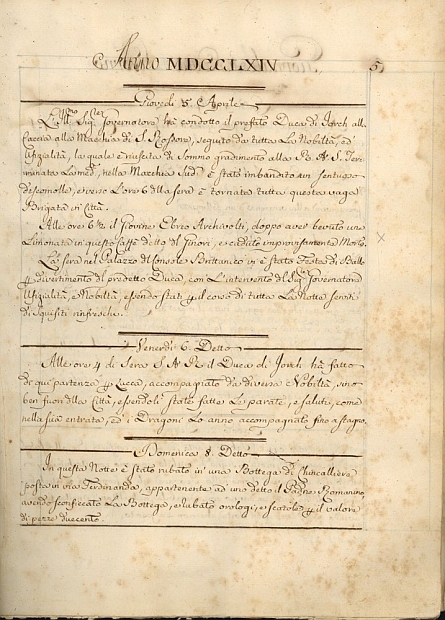 Anno MDCCLXIV.
5
Giovedì 5. Aprile
L'Ill.mo Sig.r Governatore hà condotto il prefato Duca di Jorch alla
Caccia alla Macchia di S. Rossore, seguito da tutta La Nobiltà, ed
Ufizialità, la quale è riuscita di Sommo gradimento alla Pd. A. S. Ter-
minata La med., nella Macchia sud.a è stato imbandito un sontuoso
desco molle, e verso L'ore 6 della sera è tornata tutta questa vaga
Brigata in Città.
Alle ore 6½ il Giovine Ebreo Archivolti, doppo aver bevuto una
Limonata in questo Caffè detto del Ginori, è caduto improvisamente Morto.
La sera nel Palazzo del Console Brittanico vi è stato Festa di Ballo
p divertimento del predetto Duca, con L'intervento del Sig.r Governatore
Ufizialità, e Nobiltà, essendo stati p il corso di tutta La Notte serviti
di squisiti rinfreschi.
Venerdì 6. Detto
Alle ore 4 di Sera S. A. R. il Duca di Jorch hà fatto
di qui partenza p Lucca, accompagnato da diversa Nobiltà, sino
ben fuori della Città, essendoli state fatte Le parate, e saluti, come
nella sua entrata, ed i Dragoni Lo anno accompagnato fino a stagno.
Domenica 8. Detto
In questa Notte è stato rubato in una Bottega di Chincalliere
posta in via Ferdinanda, appartenente ad uno detto il Padre Romanino
avendo sconficcato La Bottega, e rubato orologi, e scatole p il valore
di pezze duecento.